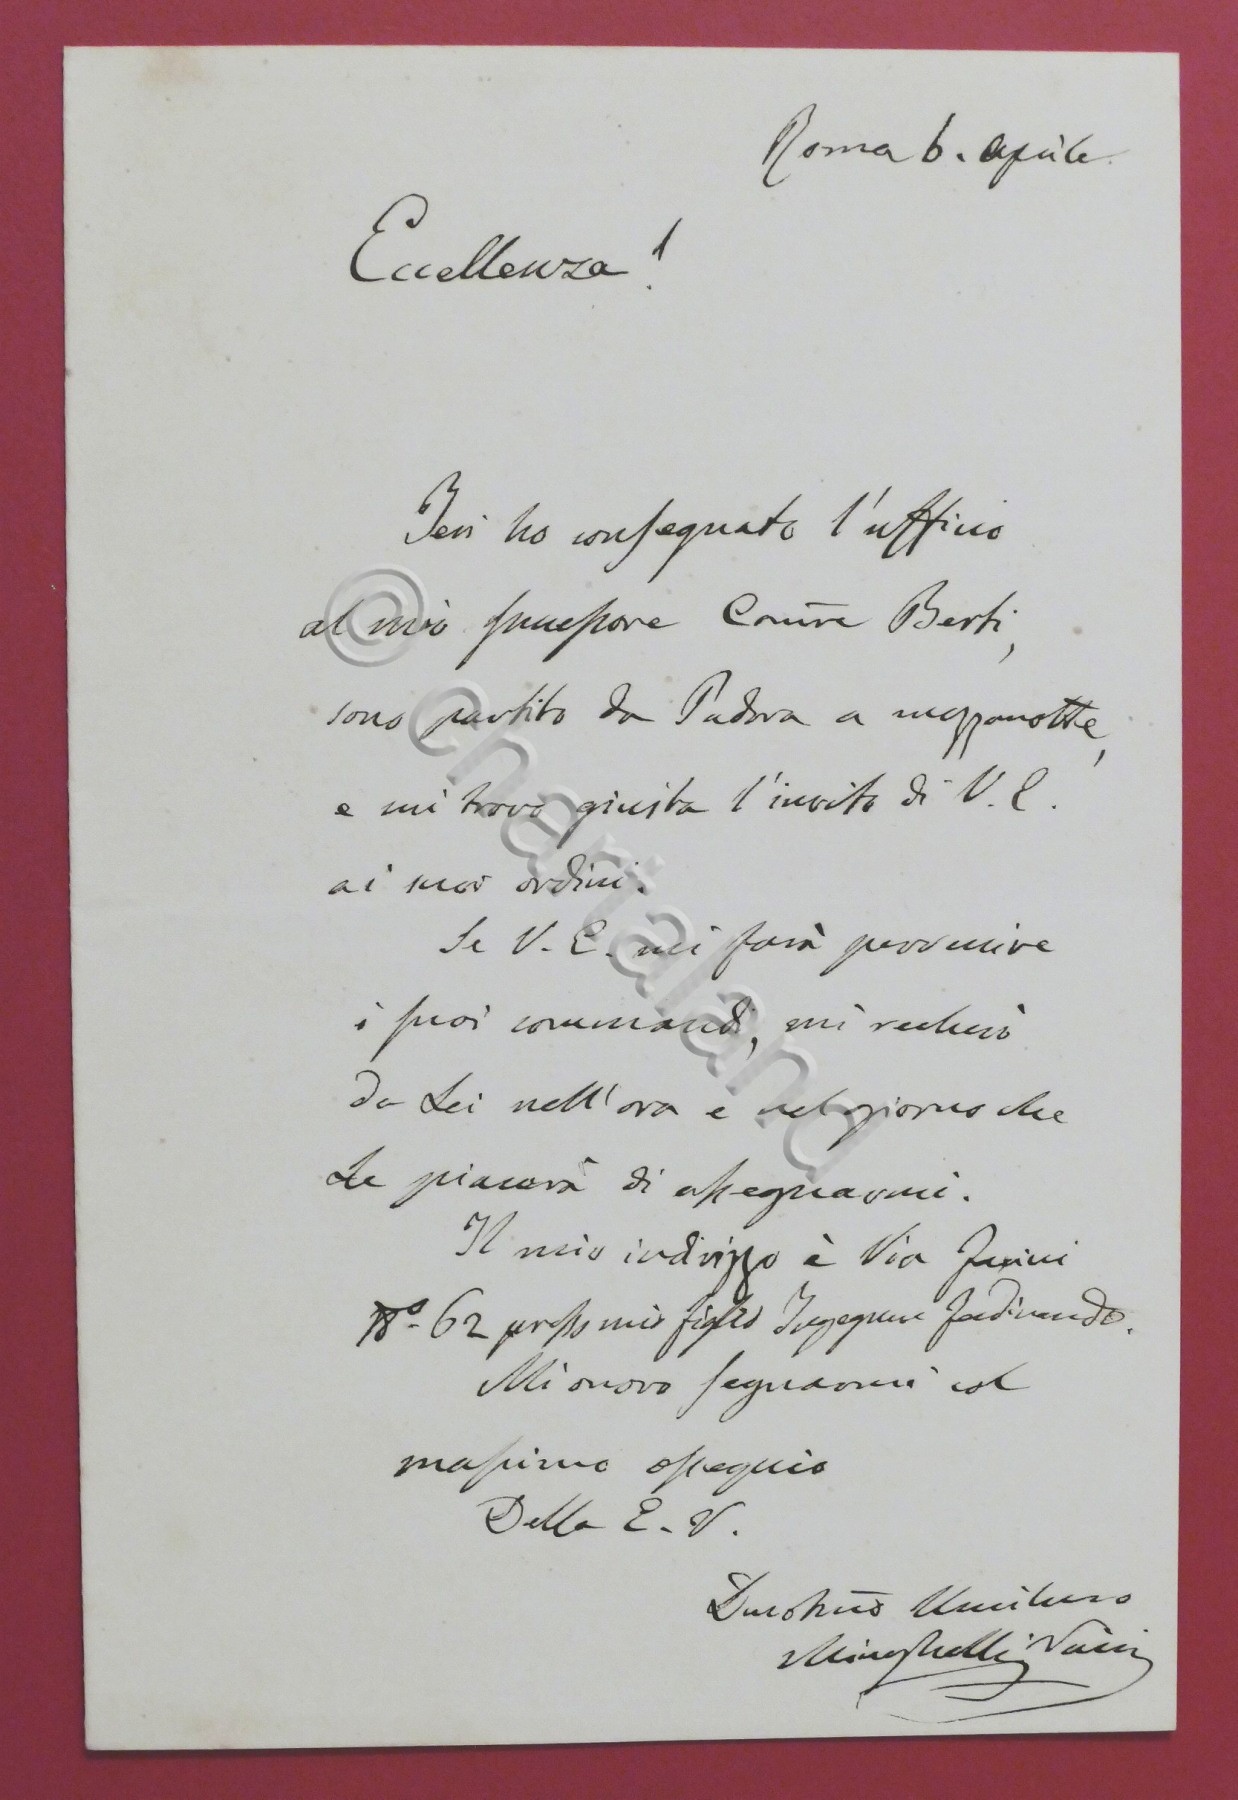 Roma 6. aprile
Eccellenza!
Jeri ho consegnato l'uffizio
al mio successore Comre Berti,
sono partito da Padova a mezzanotte,
e mi trovo giusta l'invito di V. E.
ai suoi ordini.
Se V. E. mi farà pervenire
i suoi commandi, mi recherò
da Lei nell'ora e nel giorno che
Le piacerà di assegnarmi.
Il mio indirizzo è Via Farini
No. 62 presso mio figlio Ingegnere Ferdinando.
Mi onoro segnarmi col
massimo ossequio
Della E. V.
Devotmo Umilmo
Minghelli Vaini
© chartaland